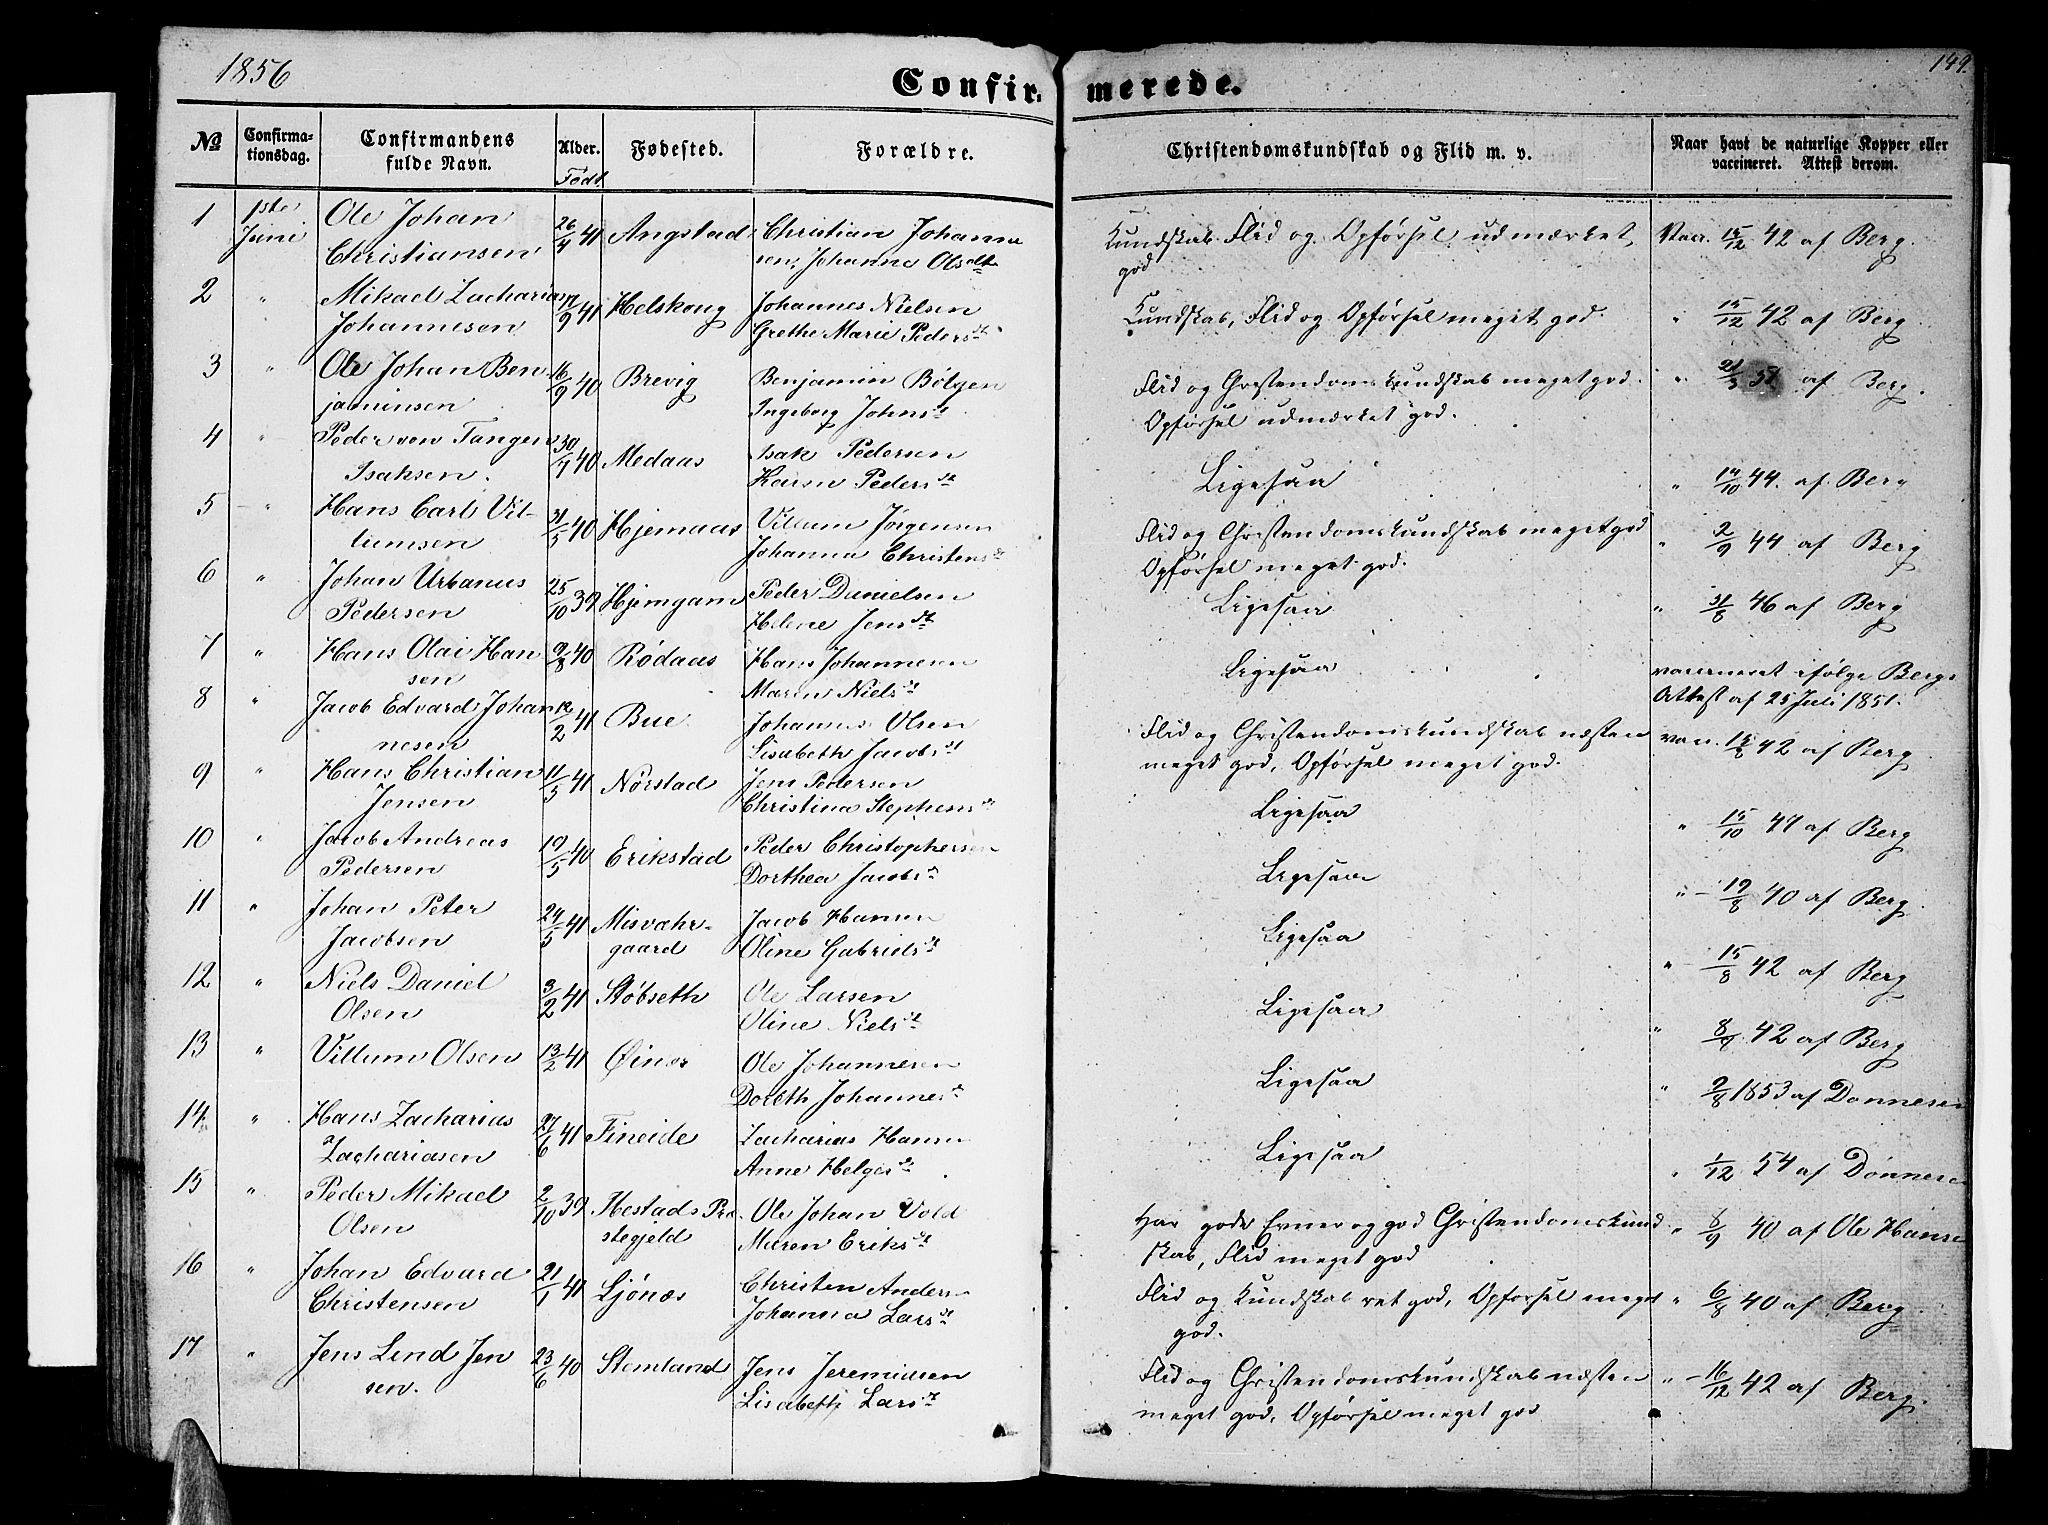 1856
149.
Confirmerede.
No
Confirma-
tionsdag.
Confirmandens
fulde Navn.
Alder.
Født
Fødested.
Forældre.
Christendomskundskab og Flid m. v.
Naar havt de naturlige Kopper eller
vaccineret. Attest derom.
1 1ste Juni Ole Johan Christiansen 26/4 41 Angstad Christian Johanne
sen, Johanna Olsdtr
Kundskab Flid og Opførsel udmærket god Vacc. 15/12 42 af Berg.
2 " Mikael Zacharias Johannesen /9 41 Helskong Johannes Nielsen
Grethe Marie Pedersdt
Kundskab, Flid og Opførsel meget god " 15/12 42 af Berg
3 " Ole Johan Benjaminsen 16/9 40 Brevig Benjamin Bötgen
Ingeborg Johnsdt
Flid og Christendomskundskab meget god.
Opførsel udmærket god. " 21/3 51 af Berg.
4 " Peder von Tangen Isaksen. 30/7 40 Medaas Isak Pedersen
Karen Pedersdt
Ligesaa " /10 44. af Berg
5 " Hans Carl Villumsen 31/5 40 Hjemaas Villum Jørgensen
Johanna Christensdt
Flid og Christendomskundskab meget god
Opførsel meget god. " 2/9 44 af Berg
6 " Johan Urbanus Pedersen 25/10 39 Hjemgam Peder Danielsen
Helene Jensdt
Ligesaa " 31/8 46 af Berg
7 " Hans Olai Hansen 9/8 40 Rödaas Hans Johannesen
Maren Nielsdt
Ligesaa vaccineret ifølge Bergs
Attest af 25 Juli 1851.
8 " Jacob Edvard Johannesen 12/2 41 Bue Johannes Olsen
Lisabeth Jacobsdt
Flid og Christendomskundskab næsten
meget god, Opførsel meget god. vac. 42 af Berg
9 " Hans Christian Jensen 11/5 41 Nørstad Jens Pedersen
Christina Stephensdt
Ligesaa " 15/10 47 af Berg
10 " Jacob Andreas Pedersen 19/5 40 Erikstad Peder Christophersen
Dorthea Jacobsdt
Ligesaa " 19/8 40 af Berg.
11 " Johan Peter Jacobsen 24/5 41 Misvahrgaard Jacob Hansen
Oline Gabrielsdt
Ligesaa " 15/8 42 af Berg
12 " Niels Daniel Olsen 3/2 41 Støbseth Ole Larsen
Oline Nielsdt
Ligesaa " 42 af Berg
13 " Villum Olsen 13/2 41 Øinæs Ole Johannesen
Doreth Johannesdt
Ligesaa " 2/8 1853 af Dønnesen
14 " Hans Zacharias Zachariasen 27/6 41 Fineide Zacharias Hansen
Anne Helgesdt
Ligesaa " 1/12 54 af Dønnesen
15 " Peder Mikael Olsen 2/10 39 Præstegjeld Ole Johan Vold
Maren Eriksdt
Har gode Evner og god Christendomskund
skab, Flid meget god " 8/9 40 af Ole Hansen
16 " Johan Edvard Christensen 21/1 41 Ljønæs Christen Andersen
Johanna Larsdt
Flid og Kundskab ret god, Opførsel meget
god. " 6/8 40 af Berg.
17 " Jens Lend Jensen. 23/6 40 Stemland Jens Jeremiasen
Lisabeth Larsdt
Flid og Christendomskundskab næsten
meget god, Opførsel meget god " 16/12 42 af Berg.